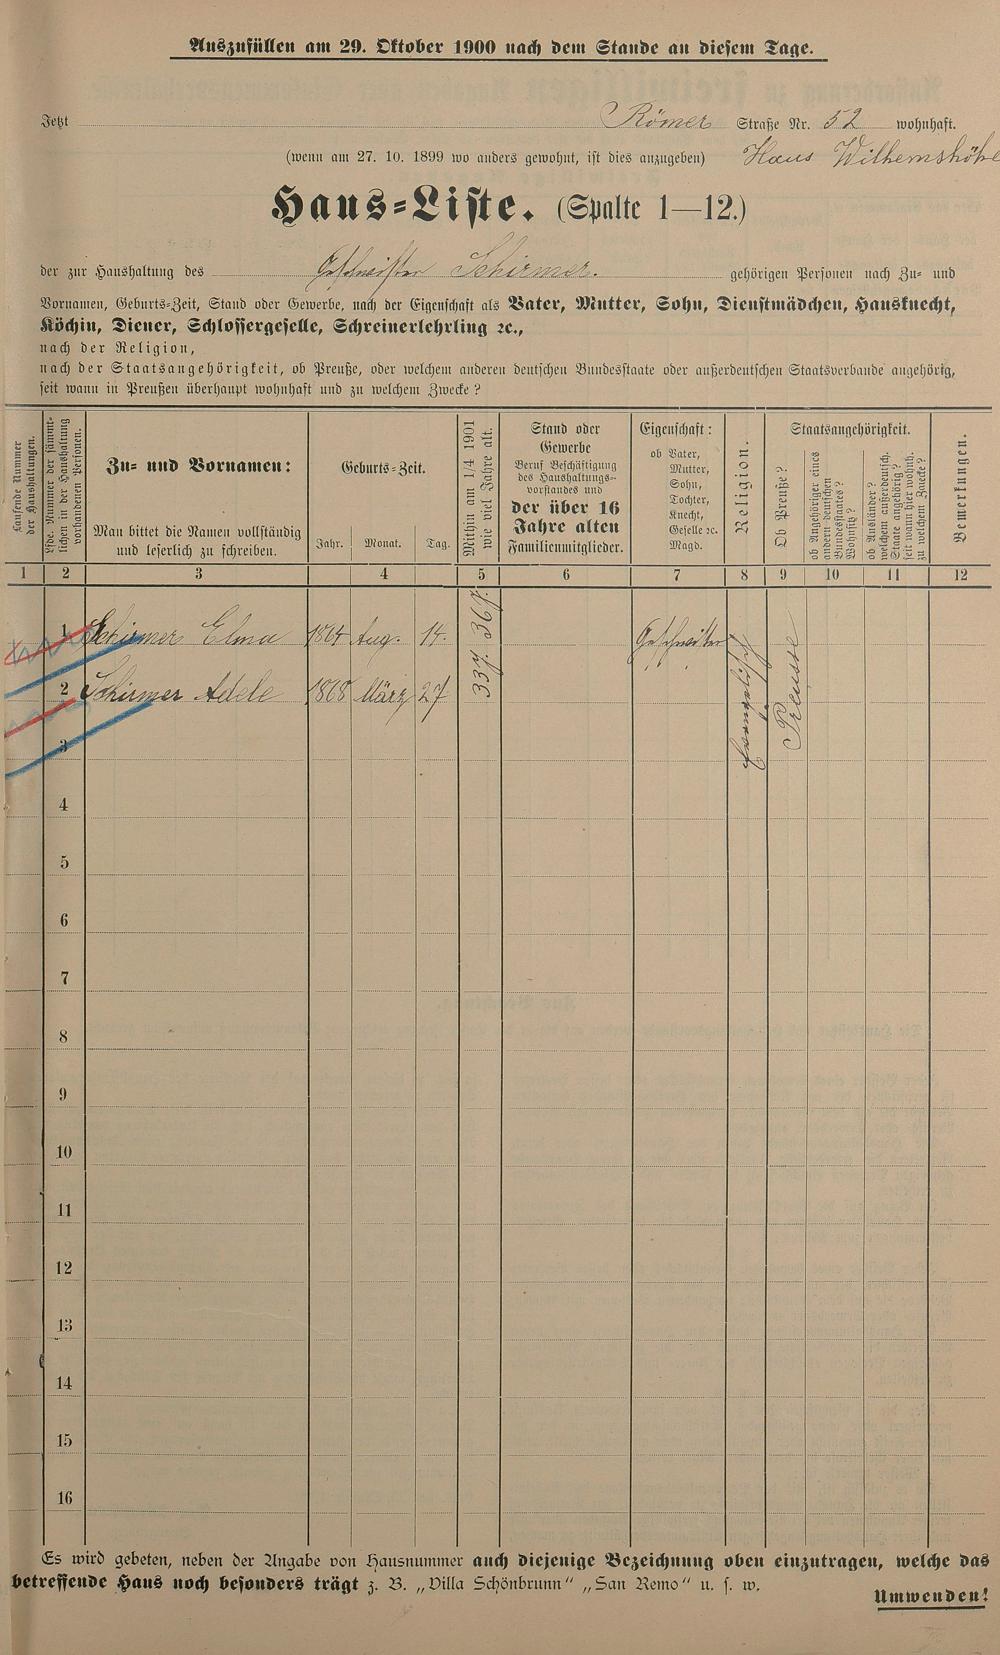 Auszufüllen am 29. Oktober 1900 nach dem Stande an diesem Tage.
Jetzt Römer Straße Nr. 52 wohnhaft.
(wenn am 27. 10. 1899 wo anders gewohnt, ist dies anzugeben) Haus Wilhemshöhe
Haus-Liste. (Spalte 1—12.)
der zur Haushaltung des Geschwister Schirmer. gehörigen Personen nach Zu- und
Vornamen, Geburts-Zeit, Stand oder Gewerbe, nach der Eigenschaft als Vater, Mutter, Sohn, Dienstmädchen, Hausknecht,
Köchin, Diener, Schlossergeselle, Schreinerlehrling ꝛc.,
nach der Religion,
nach der Staatsangehörigkeit, ob Preuße, oder welchem anderen deutschen Bundesstaate oder außerdeutschen Staatsverbande angehörig,
seit wann in Preußen überhaupt wohnhaft und zu welchem Zwecke?
Laufende Nummer
der Haushaltungen.
Lfde. Nummer der sämmt-
lichen in der Haushaltung
vorhandenen Personen.
Zu- und Vornamen:
Man bittet die Namen vollständig
und leserlich zu schreiben.
Geburts-Zeit.
Jahr. Monat. Tag.
Mithin am 1/4 1901
wie viel Jahre alt.
Stand oder
Gewerbe
Beruf Beschäftigung
des Haushaltungs-
vorstandes und
der über 16
Jahre alten
Familienmitglieder.
Eigenschaft:
ob Vater,
Mutter,
Sohn,
Tochter,
Knecht,
Geselle ꝛc.
Magd.
Religion.
Staatsangehörigkeit.
Ob Preuße?
ob Angehöriger eines
andern deutschen
Bundesstaates?
Wohnitz?
ob Ausländer?
welchem außerdeutsch.
Staate angehörig?
seit wann hier wohnh.
zu welchem Zwecke?
Bemerkungen.
1 2 3 4 5 6 7 8 9 10 11 12
1 Schirmer Elma 1864 Aug. 14. 36J. Geschwister evangelisch Preusse
2 Schirmer Adele 1868 März 27 33J.
3
4
5
6
7
8
9
10
11
12
13
14
15
16
Es wird gebeten, neben der Angabe von Hausnummer auch diejenige Bezeichnung oben einzutragen, welche das
betreffende Haus noch besonders trägt z. B. „Villa Schönbrunn" „San Remo" u. s. w.
Umwenden!